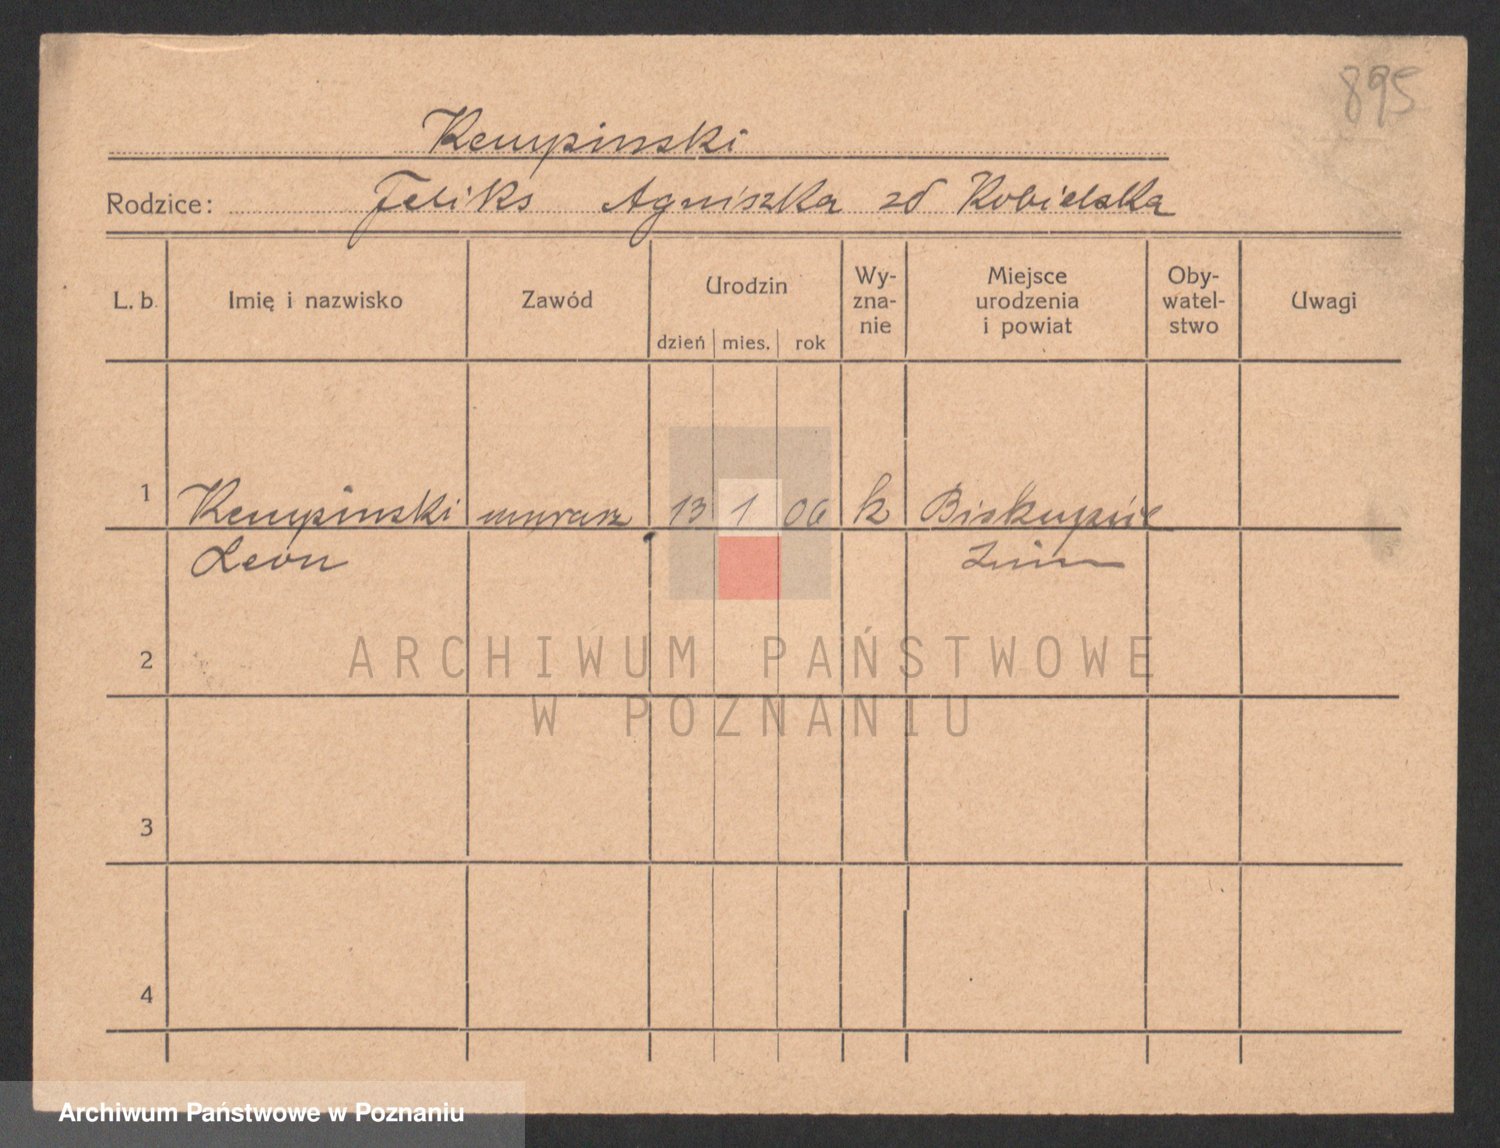 895
Kempinski
Rodzice: Feliks Agniszka zd Kobielska
L. b. Imię i nazwisko Zawód Urodzin dzień mies. rok Wy-zna-nie Miejsce urodzenia i powiat Oby-watel-stwo Uwagi
1 Kempinski murarz 13 1 06 k Biskupiec
Leon
2
ARCHIWUM PAŃSTWOWE
W POZNANIU
3
4
Archiwum Państwowe w Poznaniu